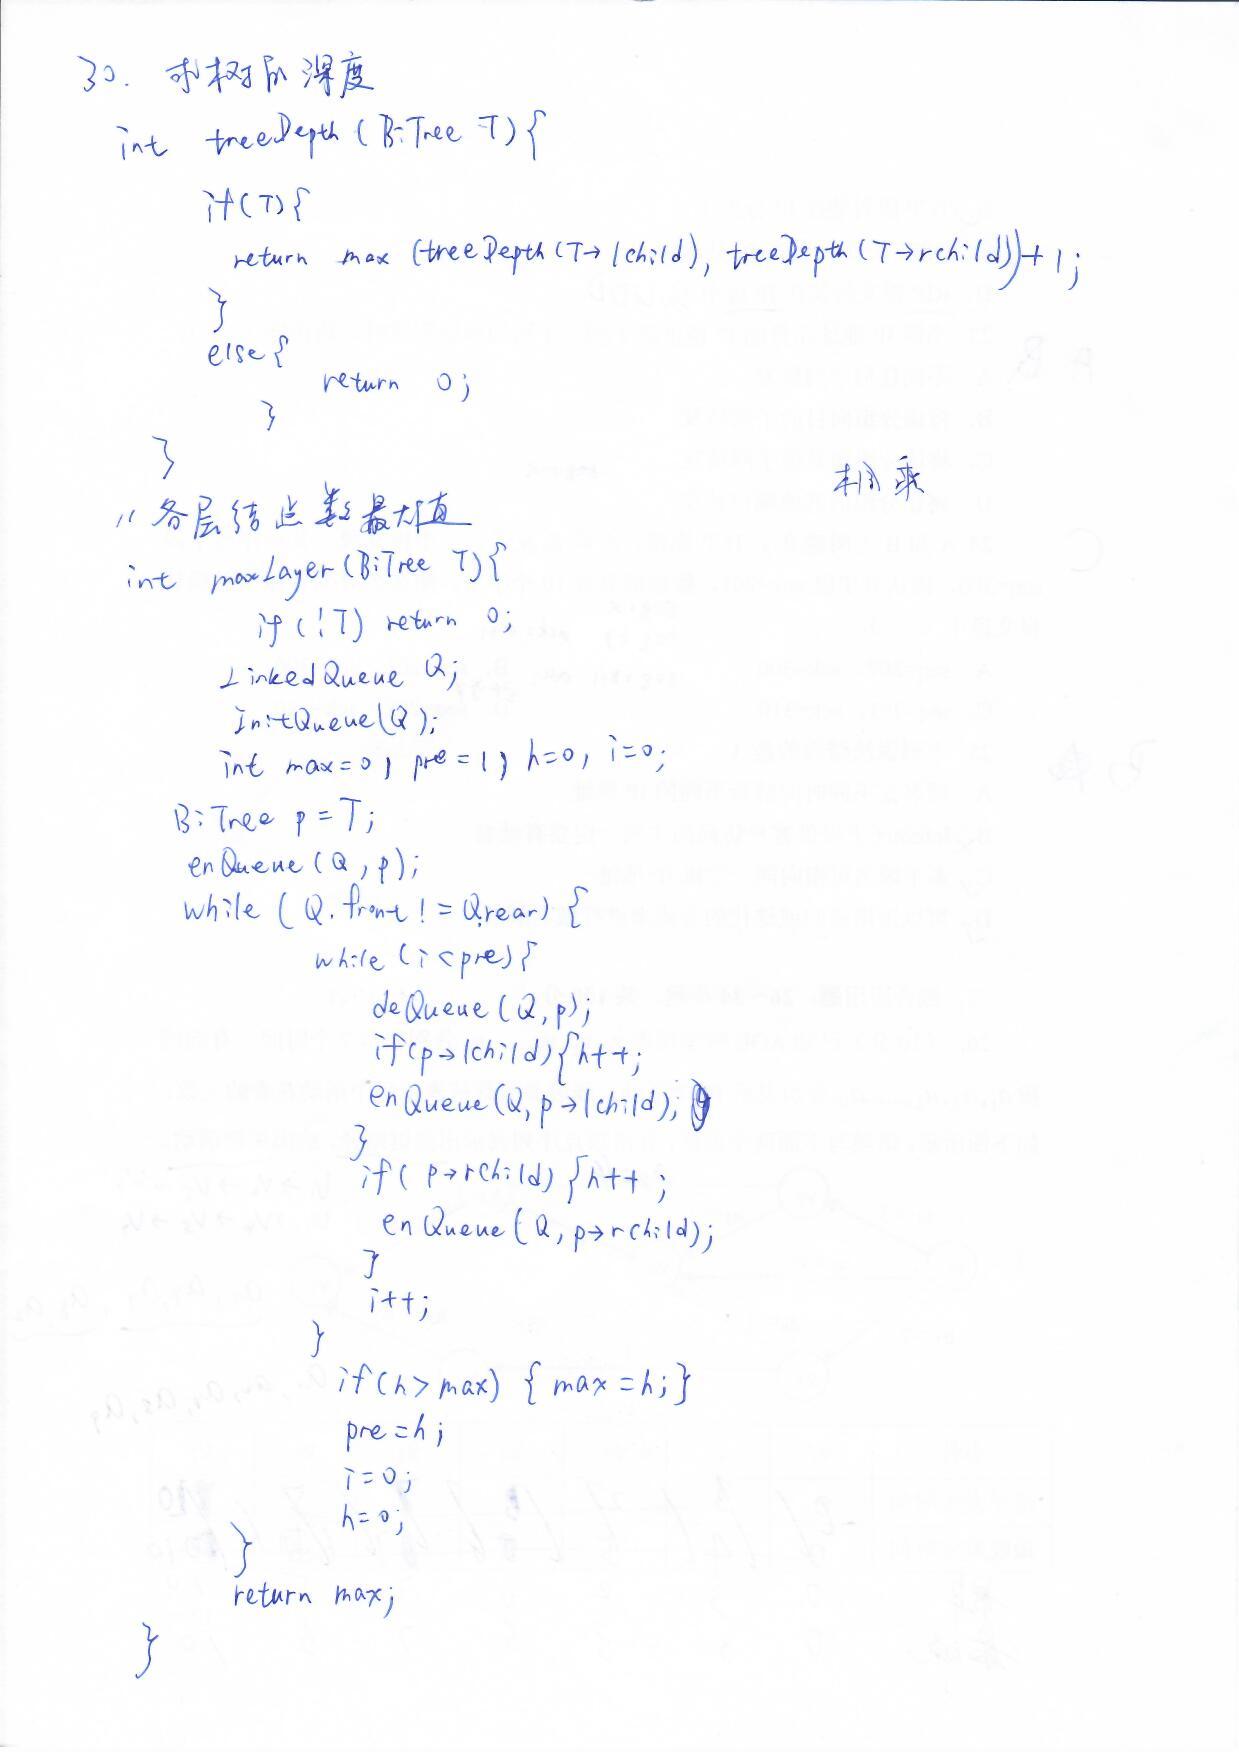 30. 求树的深度
int treeDepth (BiTree T){
if(T){
return max (treeDepth(T→lchild), treeDepth(T→rchild))+1;
}
else{
return 0;
}
}
相乘
// 各层结点数最大值
int maxLayer(BiTree T){
if(!T) return 0;
LinkedQueue Q;
InitQueue(Q);
int max=0, pre=1, h=0, i=0;
BiTree p=T;
enQueue(Q,p);
while(Q.front!=Q.rear){
while(i<pre){
deQueue(Q,p);
if(p→lchild){h++;
enQueue(Q,p→lchild);
}
if(p→rchild){h++;
enQueue(Q,p→rchild);
}
i++;
}
if(h>max) {max=h;}
pre=h;
i=0;
h=0;
}
return max;
}